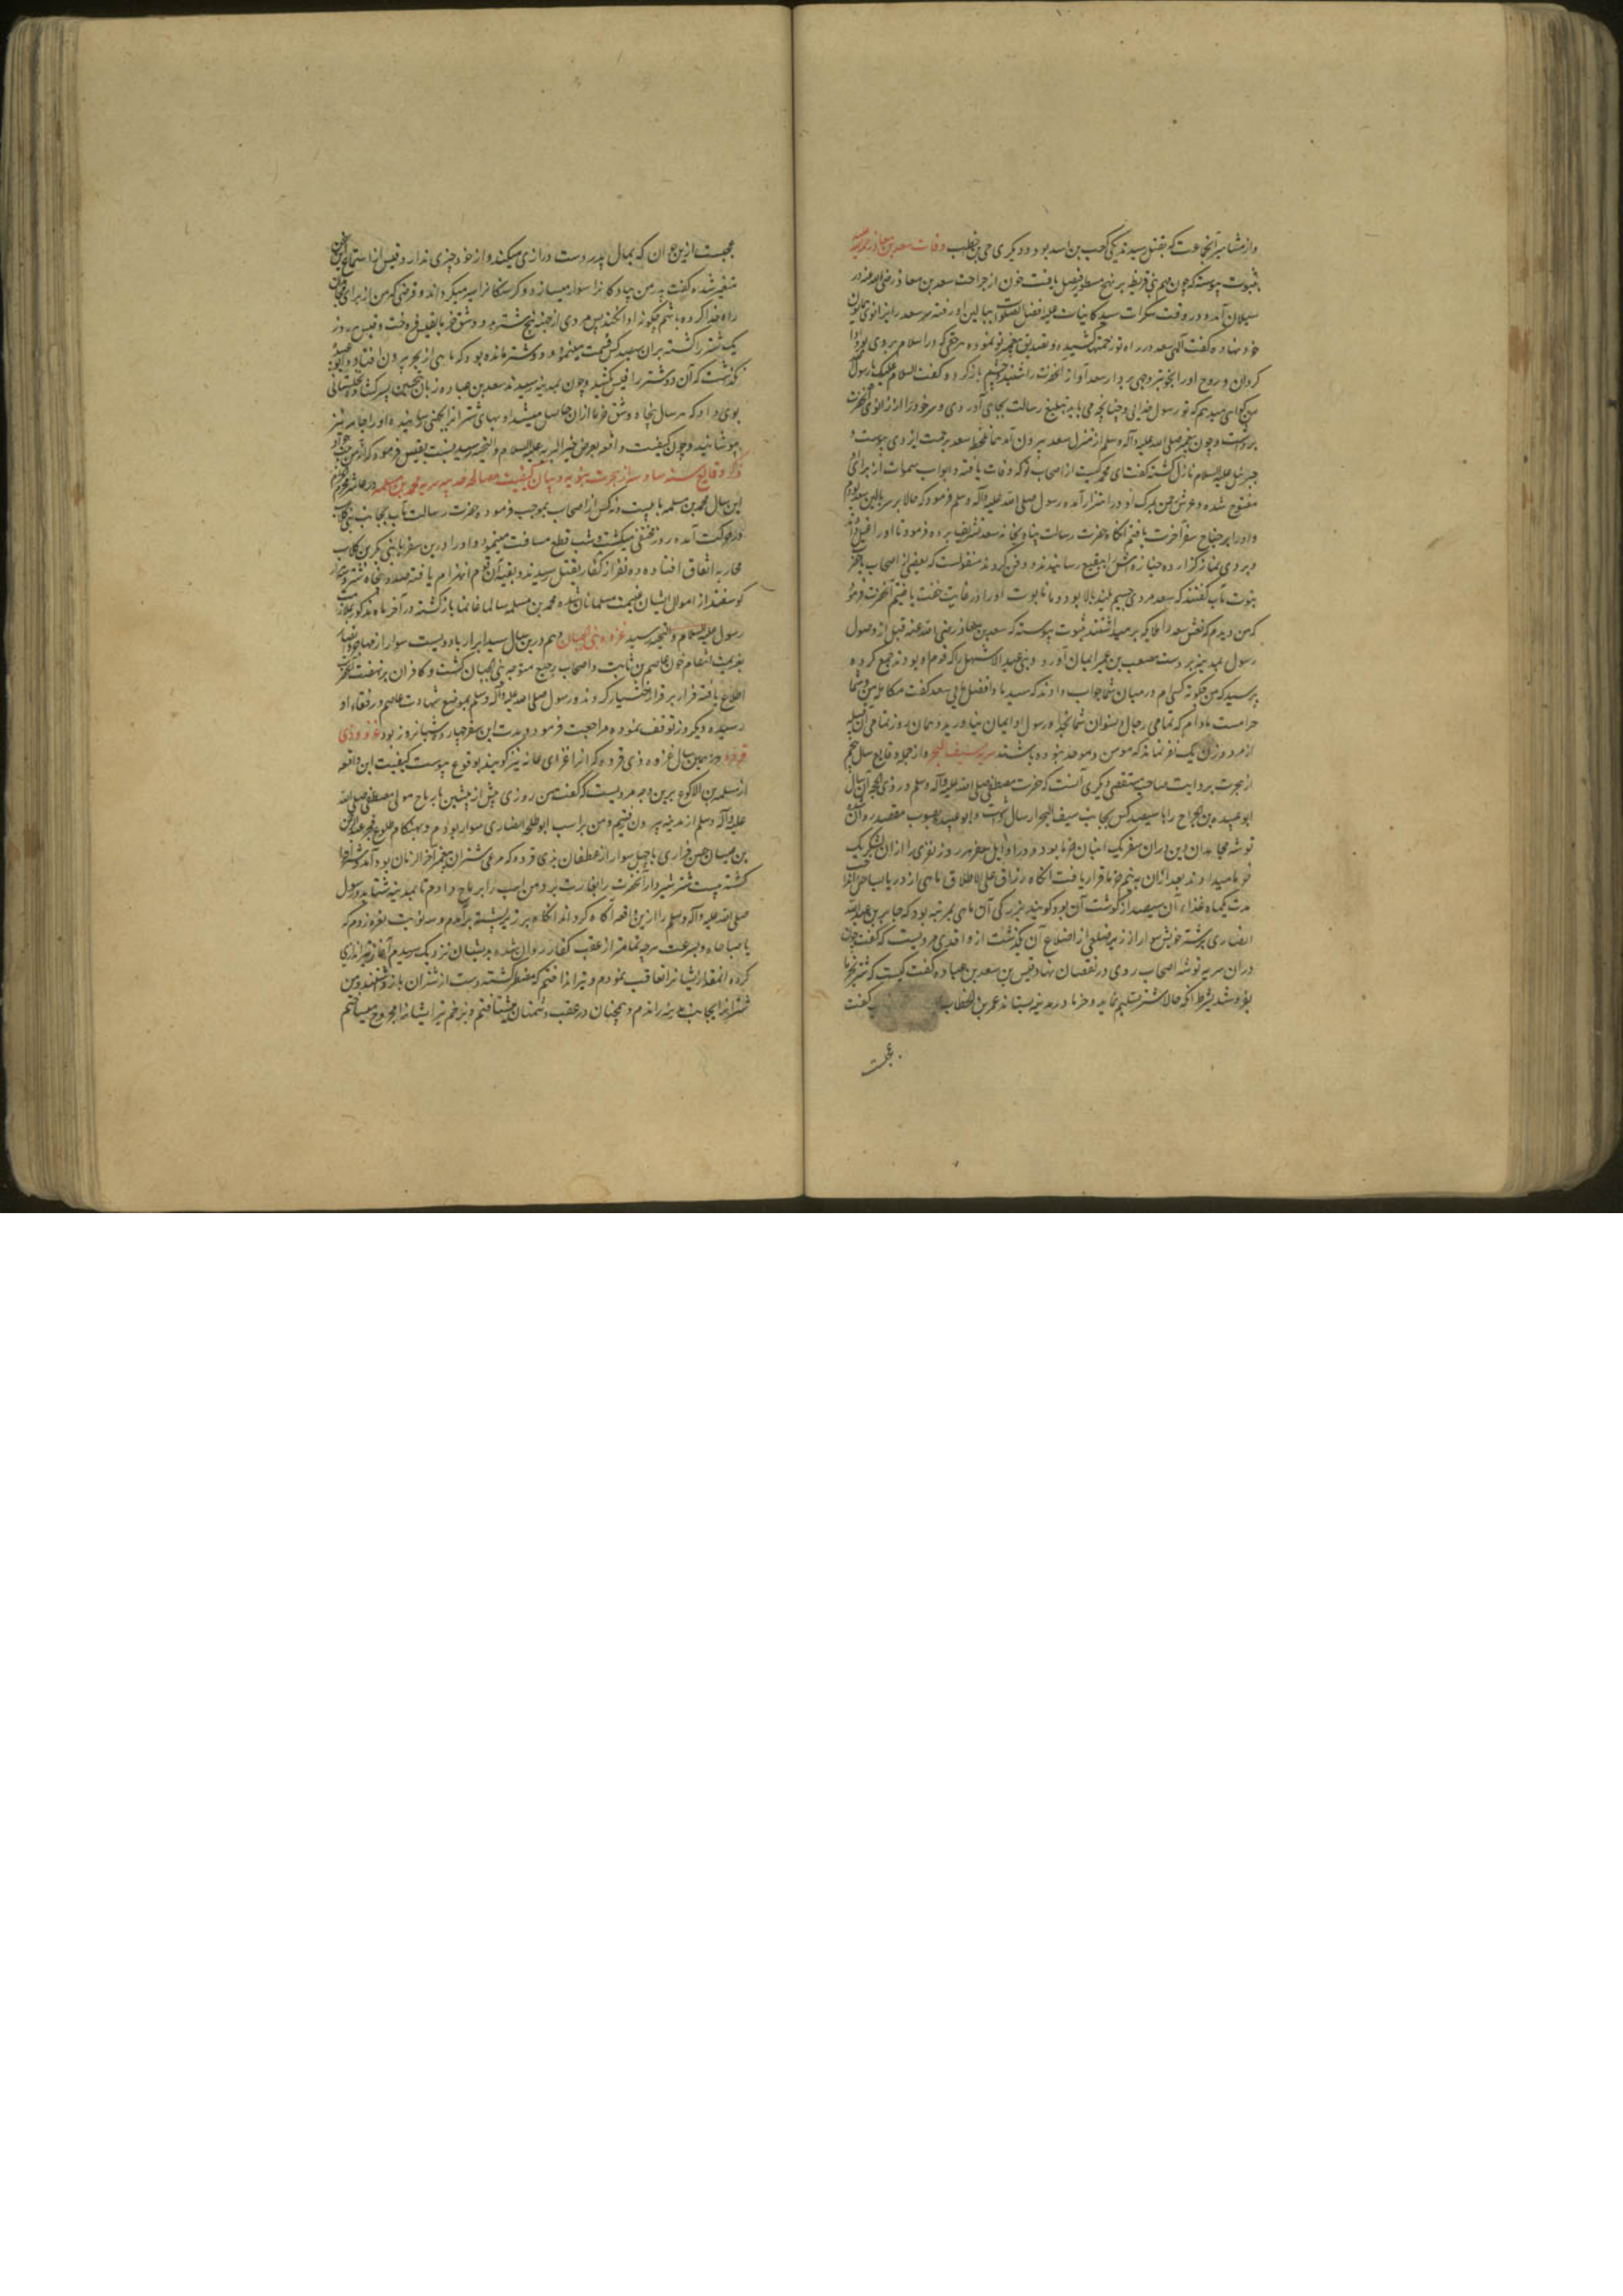 واز مشاهیر آنجماعت که بقتل رسیدند یکی کعب بن اسد بود و دیگری حی بن اخطب وفات سعد بن معاذ
بثبوت پیوسته که چون مهم بنی قریظه بر نهج مسطور فیصل یافت خون از جراحت سعد بن معاذ رضی الله عنه در
سیلان آمده و در وقت سکرات سید کاینات علیه افضل الصلوات ببالین او رفته سر سعد را بر زانوی همایون
خود نهاده گفت الهی سعد در راه تو زحمت کشیده و تصدیق پیغمبر تو نموده هر حقی که در اسلام بر وی بود ادا
کردان و روح او را بخوبتر وجهی بردار سعد آواز آنحضرت را شنید و چشم باز کرد و گفت السلام علیک یا رسول الله
من گواهی میدهم که تو رسول خدایی و چنانچه می باید تبلیغ رسالت بجای آوردی و سر خود را از زانوی آنحضرت
برداشت و چون پیغمبر صلی الله علیه وآله وسلم از منزل سعد بیرون آمد همان لحظه سعد برحمت ایزدی پیوست و
جبرئیل علیه السلام نازل گشته گفت ای محمد کیست از اصحاب تو که وفات یافته و ابواب سموات از برای او
مفتوح شده و عرش رحمن بمرک او در اهتزاز آمده رسول صلی الله علیه وآله وسلم فرمود که حالا بر سر بالین سعد بودم
و او را بر جناح سفر آخرت یافتم انگاه حضرت رسالت پناه بخانه سعد تشریف برده فرمود تا او را غسل دادند
و بر وی نماز گزارده جنازه اش را ببقیع رسانیدند و دفن کردند منقولست که بعضی از اصحاب بحضرت
نبوت مآب گفتند که سعد مردی جسیم بلند بالا بود و ما تابوت او را در غایت خفت یافتیم آنحضرت فرمود
که من دیدم که نعش سعد را ملایکه بر میداشتند ثبوت پیوسته که سعد بن معاذ رضی الله عنه قبل از وصول
رسول بمدینه بر دست مصعب بن عمیر ایمان آورد و بنی عبد الاشهل را که قوم او بودند جمع کرده
پرسید که من چگونه کسی ام در میان شما جواب دادند که سید ما و افضل مایی سعد گفت مکالمه من با شما
حرامست مادام که تمامی رجال و نسوان شما بخدا و رسول او ایمان نیاورید و همان روز تمامی آن قبیله
از مرد و زن یک نفر نماند که مومن و موحد نبوده باشند سریه سیف البحر و از جمله وقایع سال پنجم
از هجرت بروایت صاحب مستقصی دیگری آنست که حضرت مصطفی صلی الله علیه وآله وسلم در ذی الحجه آن سال
ابو عبیده بن الجراح را با سیصد کس بجانب سیف البحر ارسال داشت و ابو عبیده بصوب مقصد روان شده
توشه مجاهدان دین در ان سفر یک انبان خرما بود و در اوایل سفر هر روز نفری را از ان لشکر یک
خرما میدادند بعد از ان به نیم خرما قرار یافت انگاه رزاق علی الاطلاق ماهی از دریا بساحل انداخت
مدت یکماه غذاء آن سیصد از گوشت آن بود گویند بزرگی آن ماهی بمرتبه بود که جابر بن عبد الله
انصاری بر شتر خویش سوار از زیر ضلعی از اضلاع آن گذشت از واقدی مرویست که گفت چون
دران سریه توشه اصحاب روی در نقصان نهاد قیس بن سعد بن عباده گفت کیست که شتر بخرما
بفروشد بشرط آنکه حالا شتر تسلیم نماید و خرما در مدینه بستاند عمر بن الخطاب گفت
عجبست
عجبست ازین جوان که بمال پدر دست درازی میکند و از خود چیزی ندارد و قیس از استماع این سخن
متغیر شده گفت پدر من پیادگانرا سوار میسازد و گرسنگانرا سیر میگرداند و قرضی که من از برای مجاهدان
راه خدا کرده باشم چگونه ادا نکند پس مردی از جهینه پنج شتر بدو وسق خرما بالفعل فروخت و قیس هر روز
یک شتر را کشته بران سیصد کس قسمت مینمود و دو شتر مانده بود که ماهی از بحر بیرون افتاد و ابو عبیده
نگذاشت که آن دو شتر را قیس بکشد و چون بمدینه رسیدند سعد بن عباده زبان بتحسین پسر گشاده نخلستانی
بوی داد که هر سال پنجاه وسق خرما از ان حاصل میشد و بهای شتر از جهنی رسانیده او را جامه نیز
بپوشانید و چون کیفیت واقعه بعرض خیر البریه علیه السلام والتحیه رسید نسبت بقیس فرمود که
ذکر وقایع سنه سادسه از هجرت نبویه و بیان کیفیت مصالحه حدیبیه سریه محمد بن مسلمه در عاشر محرم
این سال محمد بن مسلمه با بیست و نه کس از اصحاب بموجب فرموده حضرت رسالت مآب بجانب بنی کلاب
در حرکت آمده روز مختفی میگشت و شب قطع مسافت مینمود و او را درین سفر با بنی بکر بن کلاب
محاربه اتفاق افتاده ده نفر از کفار بقتل رسیدند و بقیه آن قوم انهزام یافته صد و پنجاه شتر و سه هزار
گوسفند از اموال ایشان غنیمت مسلمانان شده محمد بن مسلمه سالما غانما بازگشته در آخر ماه مذکور بملازمت
رسول علیه السلام والتحیه رسید غزوه بنی لحیان و هم درین سال سید ابرار با دویست سوار از مهاجر و انصار
بعزیمت انتقام خون عاصم بن ثابت و اصحاب رجیع متوجه بنی لحیان گشت و کافران بر نهضت آنحضرت
اطلاع یافته فرار بر قرار اختیار کردند و رسول صلی الله علیه وآله وسلم بموضع شهادت عاصم و رفقاء او
رسیده دیکروز توقف نموده مراجعت فرمود و مدت این سفر چهارده شبانروز بود غزوه ذی
قرد و در همین سال غزوه ذی قرد که آنرا غزای غابه نیز گویند بوقوع پیوست کیفیت این واقعه
از سلمه بن الاکوع برین وجه مرویست که گفت من روزی پیش از پیشین با رباح مولی مصطفی صلی الله
علیه وآله وسلم از مدینه بیرون رفتیم و من بر اسب ابو طلحه انصاری سوار بودم و بهنگام طلوع فجر عبد الرحمن
بن عیینه بن حصن فزاری با چهل سوار از غطفان بذی قرد که مرعی شتران پیغمبر آخر الزمان بود آمده
کشته بیست شتر شیردار آنحضرت را بغارت برد و من اسب را برباح دادم تا بمدینه شتابد و رسول
صلی الله علیه وآله وسلم را ازین واقعه آگاه گرداند انگاه بر زبر پشته برآمدم و سه نوبت نعره زدم که
یا صباحاه و بسرعت هرچه تمامتر از عقب کفار روان شده بدیشان نزدیک رسیدم آغاز تیراندازی
کرده آنمقدار ایشانرا تعاقب نمودم و تیر انداختم که مضطر گشته دست از شتران بازداشتند و من
شترانرا بجانب مدینه راندم و همچنان در عقب دشمنان میشتافتم و بزخم تیر ایشانرا مجروح میساختم